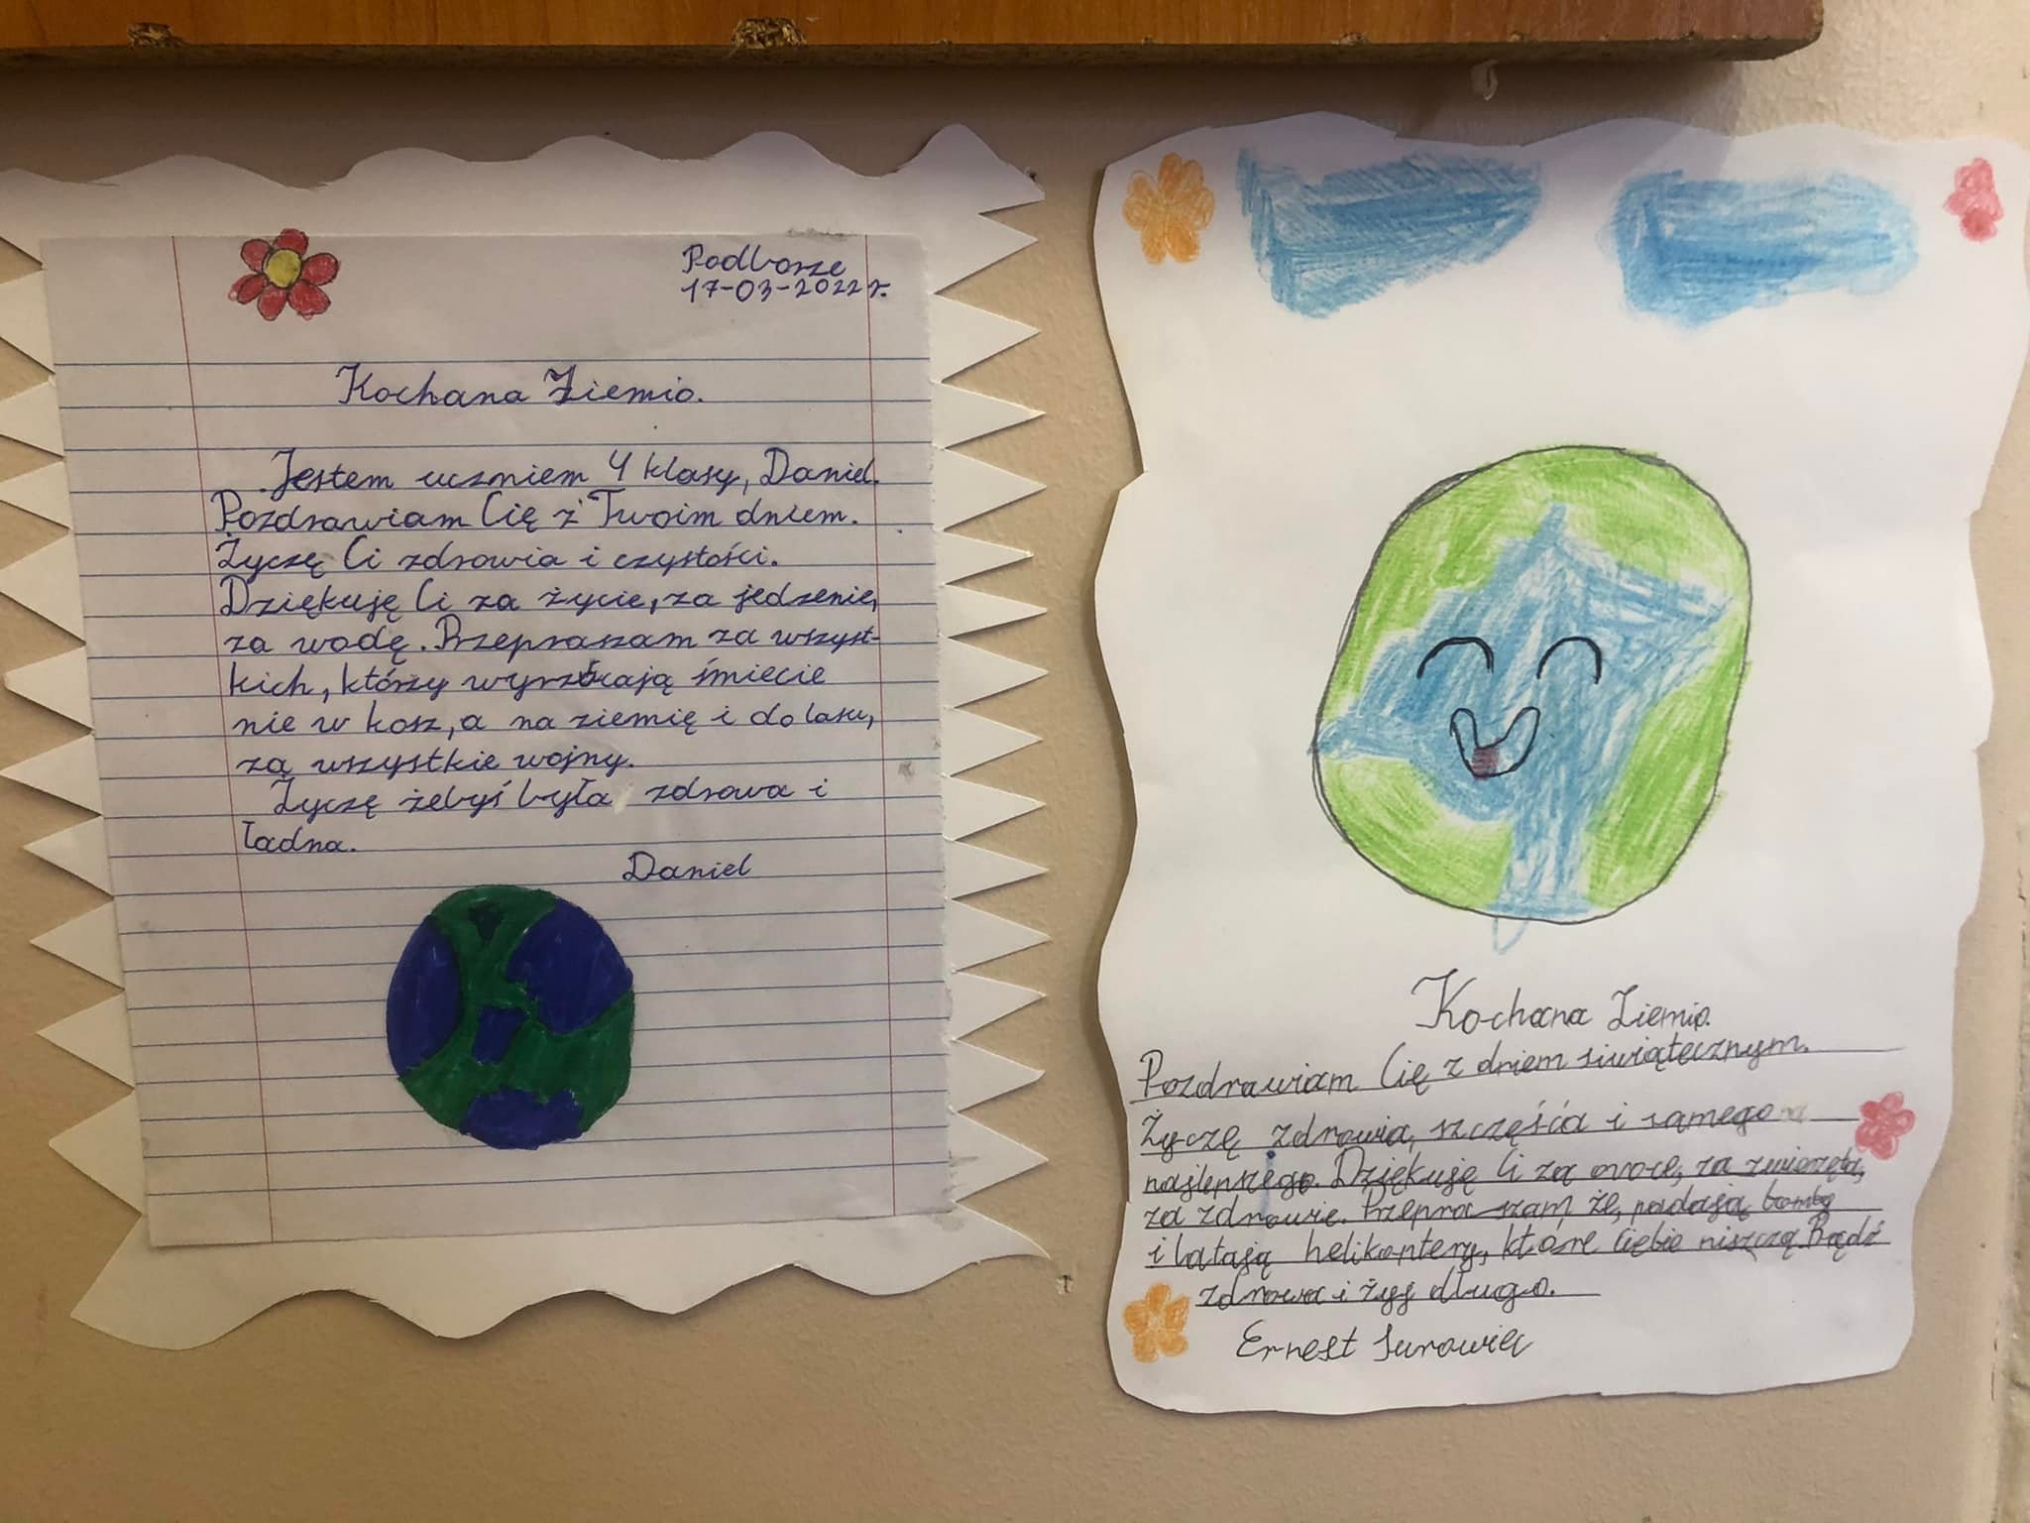 Podborze
17-03-2022 r.
Kochana Ziemio.
Jestem uczniem 4 klasy, Daniel.
Pozdrawiam Cię z Twoim dniem.
Życzę Ci zdrowia i czystości.
Dziękuję Ci za życie, za jedzenie,
za wodę. Przepraszam za wszyst-
kich, którzy wyrzucają śmiecie
nie w kosz, a na ziemię i do lasu,
za wszystkie wojny.
Życzę żebyś była zdrowa i
ładna.
Daniel
Kochana Ziemio.
Pozdrawiam Cię z dniem siwiątecznym.
Życzę zdrowia, szczęśća i samego
najlepszego. Dziękuję Ci za owoce, za zwierzęta,
za zdrowie. Przepraszam że, padają bomby
i latają helikoptery, które Ciebie niszczą. Bądź
zdrowa i żyj długo.
Ernest Surowiec